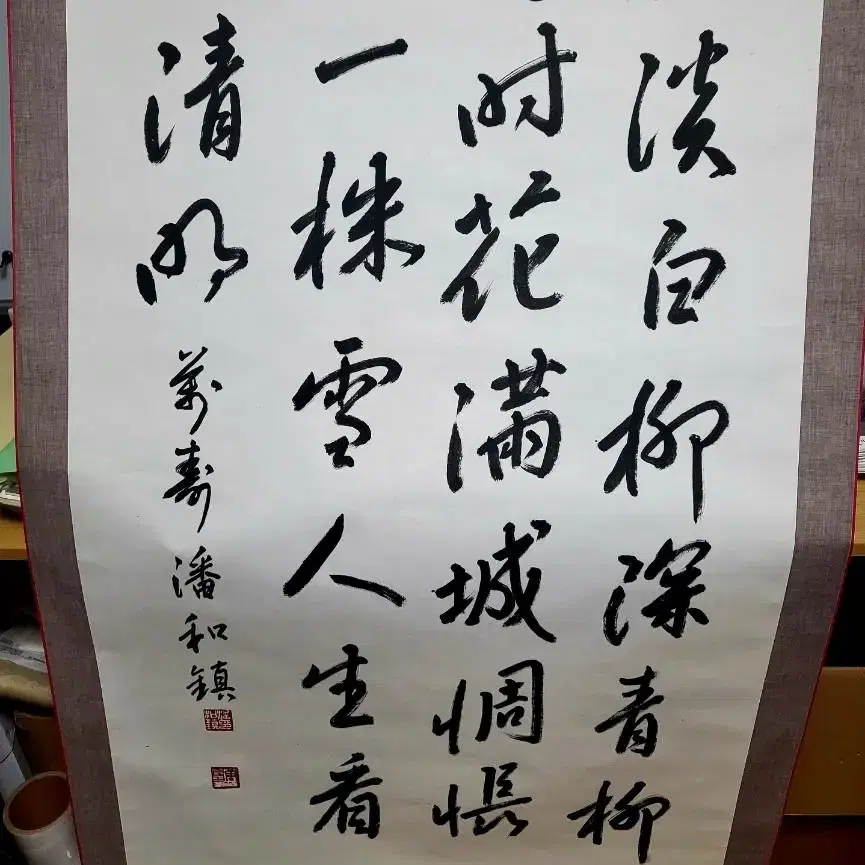 淡白柳深青柳
時花滿城惆悵
一株雪人生看
清明
萬壽潘和鎮